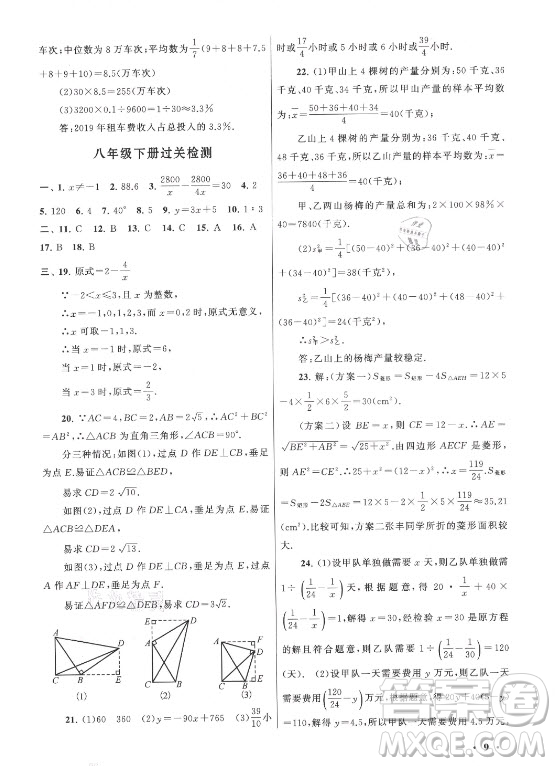 车次;中位数为 8 万车次;平均数为 1/7(9+8+8+7.5
+8+9+10)=8.5(万车次)
(2)30×8.5=255(万车次)
(3)3200×0.1÷9600=1÷30≈3.3%
答:2019年租车费收入占总投入的3.3%.
八年级下册过关检测
一、1. x≠-1 2. 88.6 3. 2800/x-2800/4x=30 4. 2
5. 120 6. 4 7. 40° 8. 9. y=3x+5 10.
二、11. C 12. B 13. B 14. C 15. A 16. A
17. B 18. B
三、19. 原式=2-4/x
∵-2<x≤3,且 x 为整数,
∴x=-1,0,1,2,3时,原式无意义
∴x 可取-1,1,3.
∴当 x=1 时,原式=-2
当 x=3 时,原式=2/3.
20. ∵AC=4,BC=2,AB=2√5,∴AC²+BC²
=AB²,∴△ACB为直角三角形,∠ACB=90°.
分三种情况:如图(1),过点 D 作 DE⊥CB,垂足
为点 E.易证△ACB≌△BED,
易求 CD=2√10.
如图(2),过点 D 作 DE⊥CA,垂足为点 E.易证
△ACB≌△DEA,
易求 CD=2√13.
如图(3),过点 D 作 DE⊥CB,垂足为点 E,过点
A 作 AF⊥DE,垂足为点 F.
易证△AFD≌△DEB,易求 CD=3√2.
A D C B E
(1)
E D A C B
(2)
A F D C B E
(3)
21. (1)60 360 (2)y=-90x+765 (3)39/10小
时或17/4小时或 6 小时或39/4小时.
22. (1)甲山上 4 棵树的产量分别为:50千克、36
千克、40千克、34千克,所以甲山产量的样本平均数
为 x=(50+36+40+34)/4=40(千克);
乙山上 4 棵树的产量分别为:36千克、40千克、
48千克、36千克,所以乙山产量的样本平均数为 x=
(36+40+48+36)/4=40(千克).
甲、乙两山杨梅的产量总和为:2×100×98%
×40=7840(千克).
(2)s²甲=1/4[(50-40)²+(36-40)²+(40-40)²
+(34-40)²]=38(千克²),
s²乙=1/4[(36-40)²+(40-40)²+(48-40)²+
(36-40)²]=24(千克²).
∴s²甲>s²乙.
答:乙山上的杨梅产量较稳定.
23. 解:(方案一)S菱形=S矩形-4S△AEH=12×5-
4×1/2×6×5/2=30(cm²).
(方案二)设 BE=x,则 CE=12-x,∴AE=
√(BE²+AB²)=√(25+x²).由四边形 AECF 是菱形,
得 AE²=CE²,∴25+x²=(12-x)²,∴x=119/24.S菱形
=S矩形-2S△ABE=12×5-2×1/2×5×119/24≈35.21
(cm²).经比较可知,方案二张丰同学所折的菱形面积较
大.
24. (1)设甲队单独做需要 x 天,则乙队单独做需要
1÷(1/24-1/x)天.根据题意,得20·1/x+
1/24=1,解得 x=40,经检验,x=40 是原方程
的解且符合题意,则乙队单独做需要 1÷(1/24-1/40)=60(天).
(2)设甲队一天所需费用为 y 万元,则乙队一天
解得 y=4.5,所以甲队一天所需费用 4.5 万元.
· 9 ·
答案圈
MXQE.COM